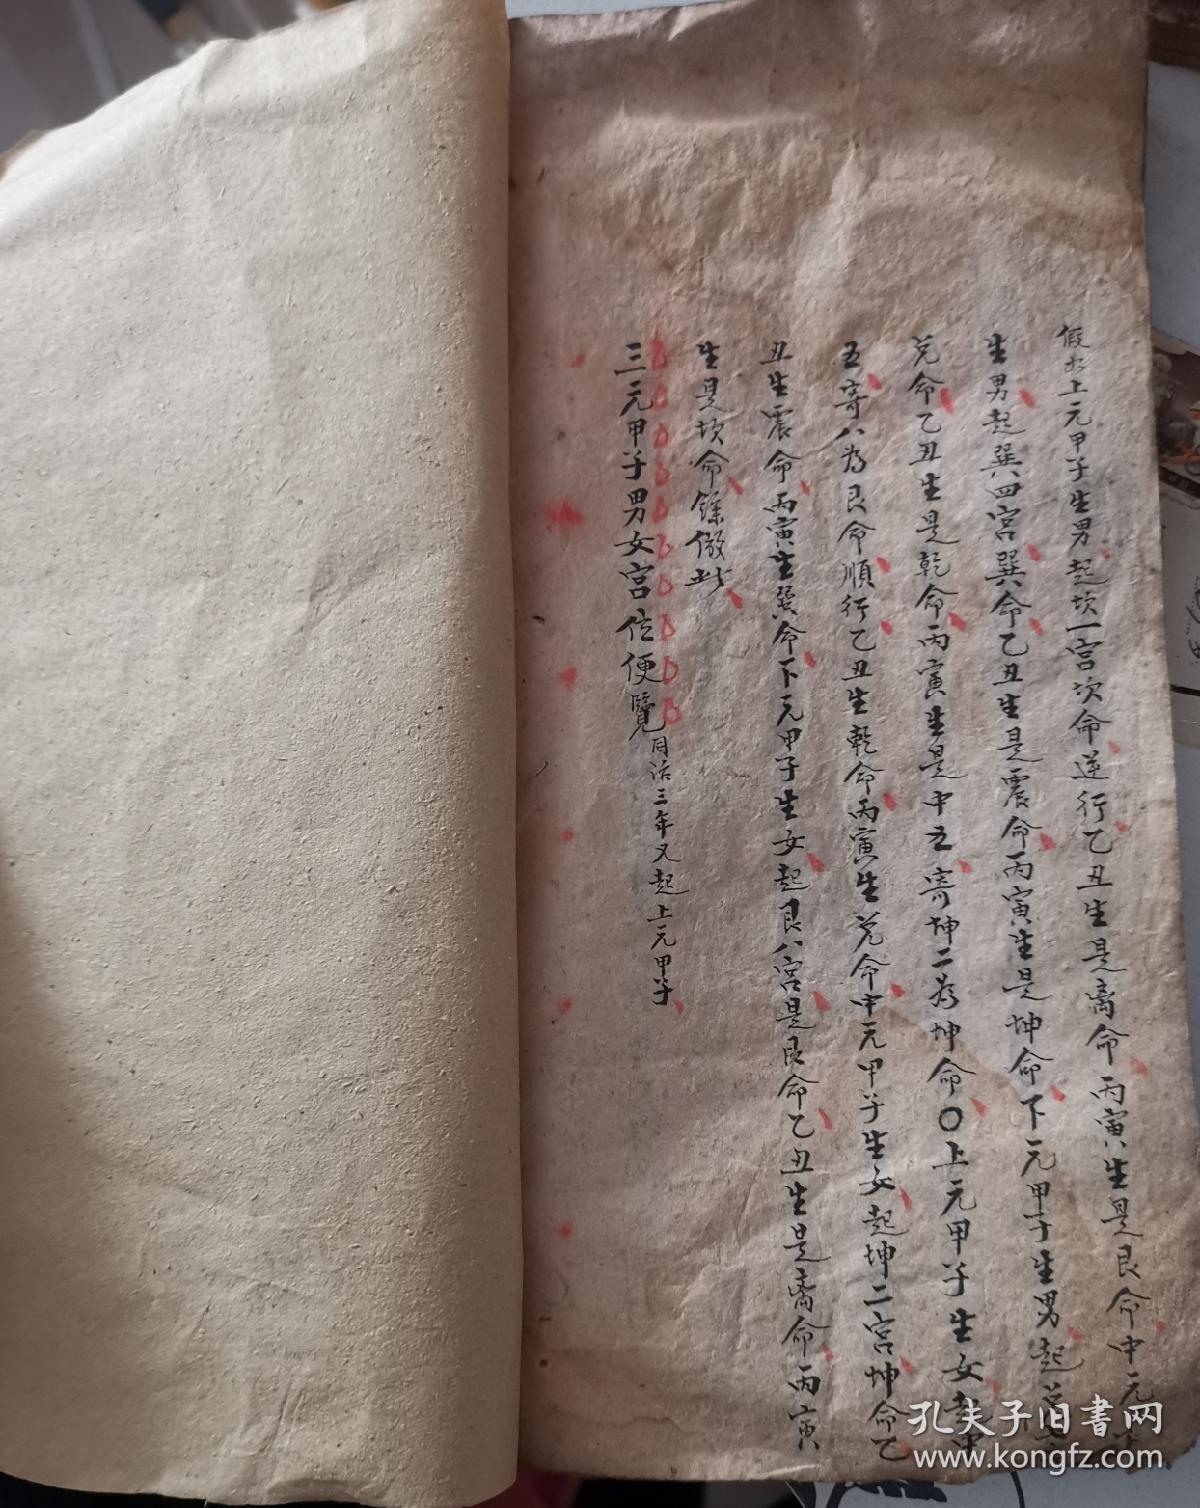 假如上元甲子生男起坎一宫坎命逆行乙丑生是离命丙寅生是艮命中元甲
生男起巽四宫巽命乙丑生是震命丙寅生是坤命下元甲子生男起
兑命乙丑生是乾命丙寅生是中五寄坤二为坤命〇上元甲子生女起中
五寄八为艮命順行乙丑生乾命丙寅生兑命中元甲子生女起坤二宫坤命乙
丑生震命丙寅生巽命下元甲子生女起艮八宫是艮命乙丑生是离命丙寅
生是坎命餘倣此
三元甲子男女宫位便覽同治三年又起上元甲子
孔夫子旧書网
www.kongfz.com